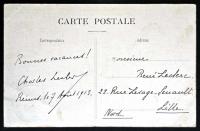 CARTE POSTALE
Correspondance
Adresse
Bonnes vacances!
Charles
le 7 Août 1913.
Monsieur
René Leclerc
22 Rue Lesage-Senault
Lille
Nord